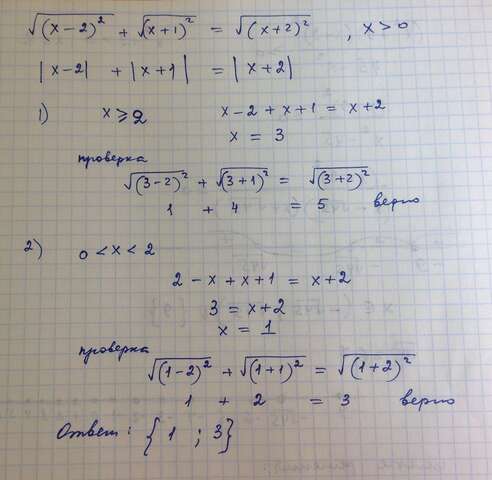 √(x-2)² + √(x+1)² = √(x+2)² , x>0
|x-2| + |x+1| = |x+2|
1) x⩾2 x-2+x+1 = x+2
x = 3
проверка
√(3-2)² + √(3+1)² = √(3+2)²
1 + 4 = 5 верно
2) 0<x<2
2-x+x+1 = x+2
3 = x+2
x = 1
проверка
√(1-2)² + √(1+1)² = √(1+2)²
1 + 2 = 3 верно
Ответ: {1 ; 3}